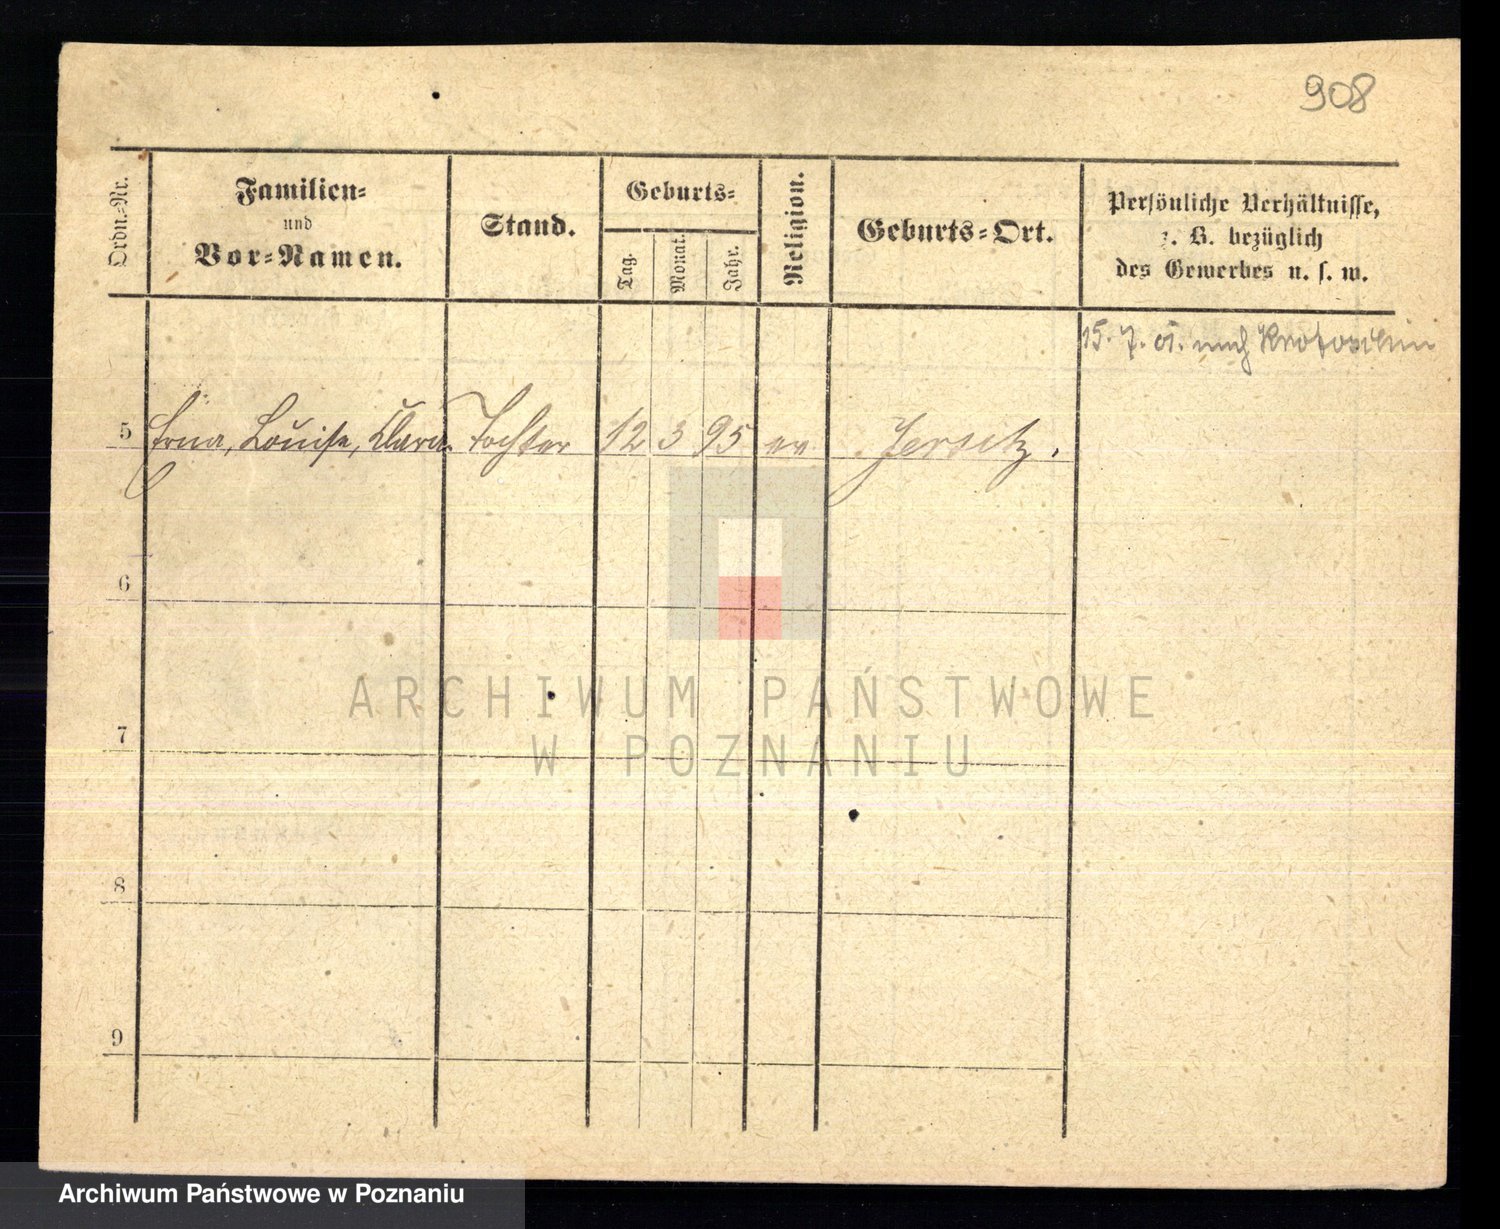 908
Ordn.-Nr.
Familien-
und
Vor-Namen.
Stand.
Geburts-
Tag.
Monat.
Jahr.
Religion.
Geburts-Ort.
Persönliche Verhältnisse,
z. B. bezüglich
des Gewerbes u. s. w.
15. 7. 01. nach Krotoschin
5 Erna, Louise, Clara Tochter 12 3 95 ev Jersitz.
6
7
8
9
ARCHIWUM PAŃSTWOWE
W POZNANIU
Archiwum Państwowe w Poznaniu